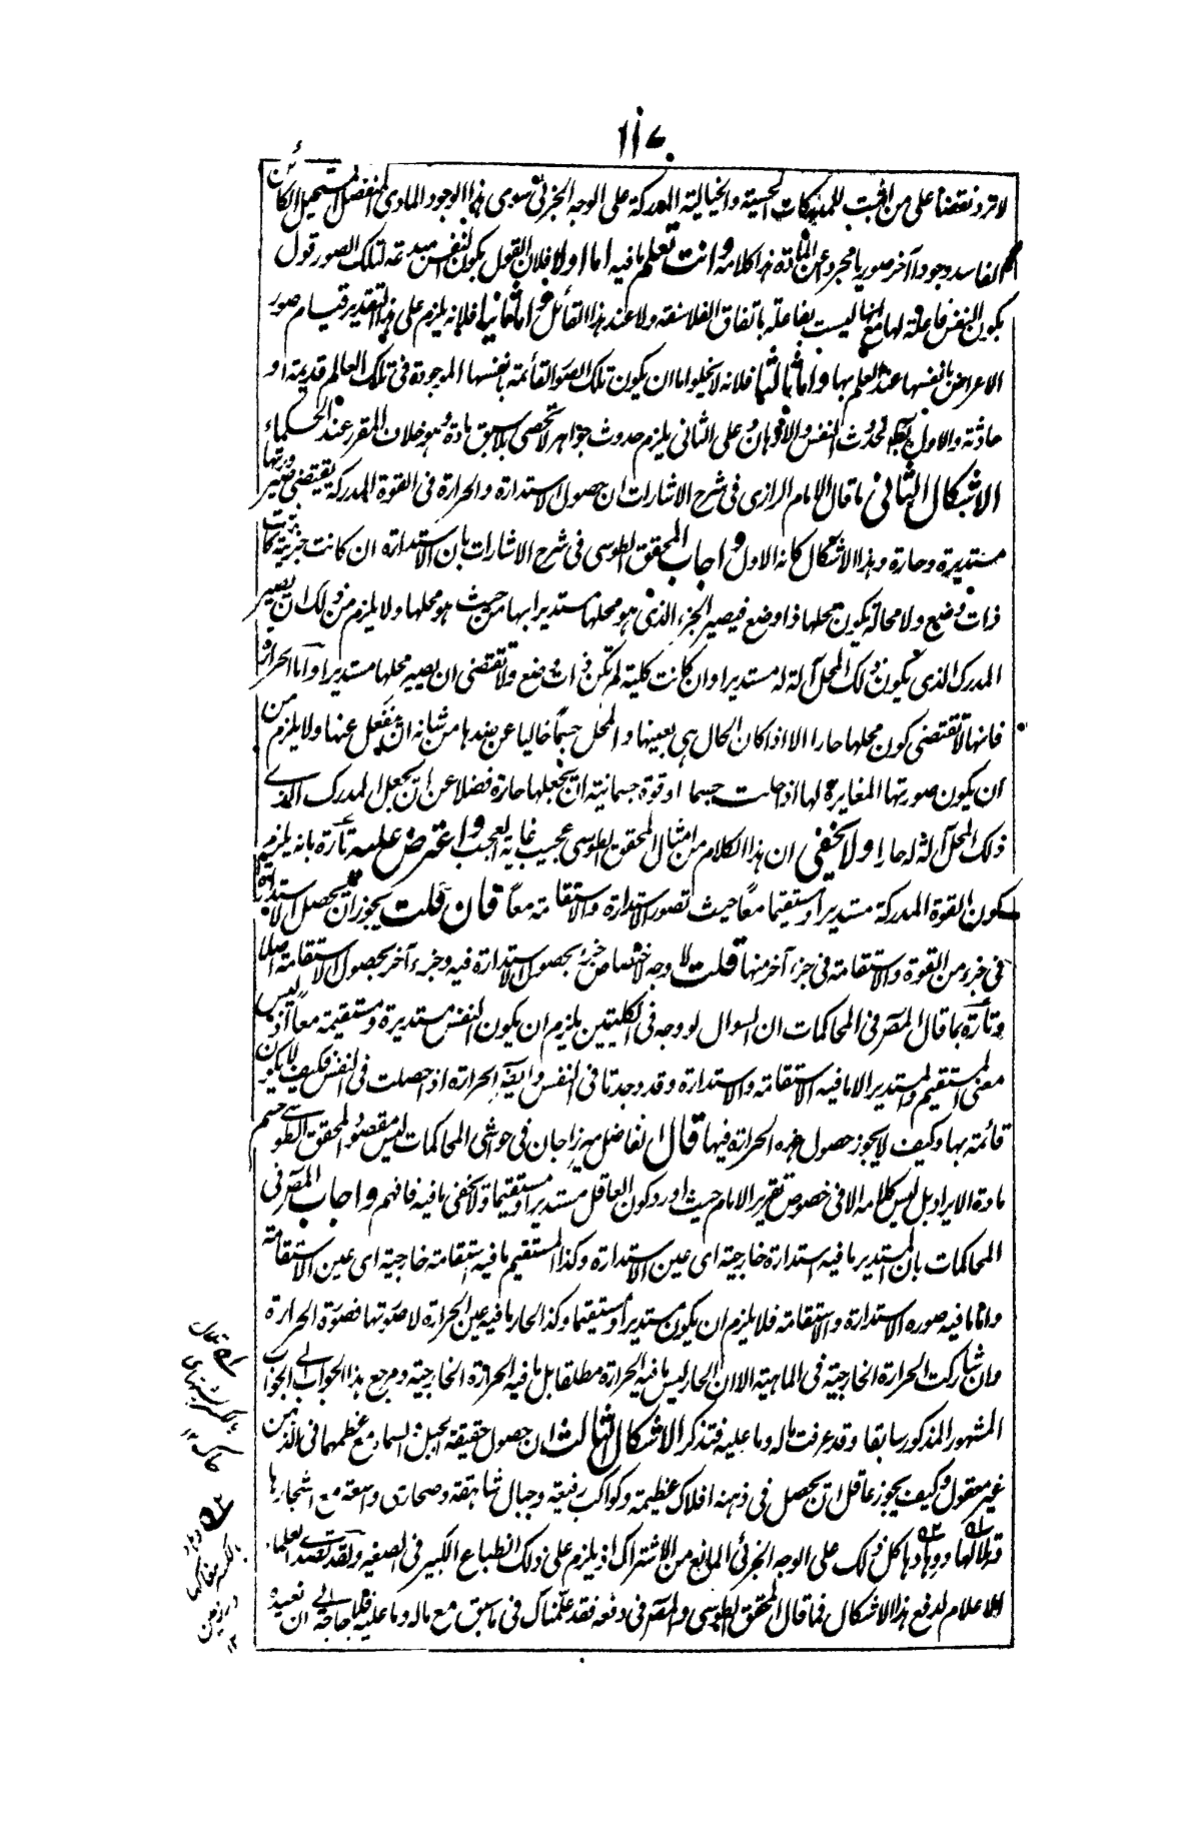 ۱۱۷
لا ترد نقضا على من اثبت للمدركات الحسية والخيالية المدركة على الوجه الجزئي سوى هذا الوجود المادي المنفصل المستحيل الكائن
الفاسد وجودا آخر صوريا مجردا عن المادة هذا كلامه وانت تعلم ما فيه اما اولا فلان القول بكون النفس مبدعة لتلك الصور قول
بكون النفس فاعلة لها مع انها ليست بفاعلة باتفاق الفلاسفة ولا عند هذا القائل واما ثانيا فلانه يلزم على هذا التقدير قيام صور
الاعراض بانفسها عند العلم بها واما ثالثا فلانه لا يخلو اما ان يكون تلك الصور القائمة بانفسها الموجودة في تلك العالم قديمة او
حادثة والاول لحدوث النفس والاذهان وعلى الثاني يلزم حدوث جواهر لا تحصى بلا سبق مادة وهو خلاف المقرر عند الحكماء
الاشكال الثاني ما قال الامام الرازي في شرح الاشارات ان حصول الاستدارة والحرارة في القوة المدركة يقتضي صيرورتها
مستديرة وحارة وهذا الاشكال كانه الاول واجاب المحقق الطوسي في شرح الاشارات بان الاستدارة ان كانت جزئية كانت
ذات وضع ولا محالة يكون محلها ذا وضع فيصير الجزء الذي هو محلها مستديرا بها من حيث هو محلها ولا يلزم من ذلك ان يصير
المدرك الذي يكون ذلك المحل آلة له مستديرا وان كانت كلية لم تكن ذات وضع ولا تقتضي ان يصير محلها مستديرا واما الحرارة
فانها لا تقتضي كون محلها حارا الا اذا كان الحال هي بعينها والمحل جسما خاليا عن ضدها من شانه ان ينفعل عنها ولا يلزم من
ان يكون صورتها المغايرة لها اذا حلت جسما او قوة جسمانية ان تجعلها حارة فضلا عن ان تجعل المدرك الذي
ذلك المحل آلة له حارا ولا يخفى ان هذا الكلام من امثال المحقق الطوسي عجيب غاية العجب واعترض عليه تارة بانه يلزم
كون القوة المدركة مستديرا ومستقيما معا حيث تصور الاستدارة والاستقامة معا فان قلت يجوز ان يحصل الاستدارة
في جزء من القوة والاستقامة في جزء آخر منها قلت لا وجه لاختصاص جزء بحصول الاستدارة فيه وجزء آخر بحصول الاستقامة اصلا
وتارة بما قال المصر في المحاكمات ان السوال لو وجه في الكليتين يلزم ان يكون النفس مستديرة ومستقيمة معا اذ ليس
معنى المستقيم والمستدير الا ما فيه الاستقامة والاستدارة وقد وجدتا في النفس وايضا الحرارة اذا حصلت في النفس فكيف لا يكون
قائمة بها وكيف لا يجوز حصول هذه الحرارة فيها قال الفاضل ميرزا جان في حواشي المحاكمات ليس مقصود المحقق الطوسي حسم
مادة الايراد بل ليس كلامه الا في خصوص تقرير الامام حيث اورد كون العاقل مستديرا ومستقيما ولا يخفى ما فيه فافهم واجاب المصر في
المحاكمات بان المستدير ما فيه استدارة خارجية اى عين الاستدارة وكذا المستقيم ما فيه استقامة خارجية اى عين الاستقامة
واما ما فيه صورة الاستدارة والاستقامة فلا يلزم ان يكون مستديرا ومستقيما وكذا الحار ما فيه عين الحرارة لا صورتها فصورة الحرارة
وان شاركت الحرارة الخارجية في الماهية الا ان الحار ليس ما فيه الحرارة مطلقا بل ما فيه الحرارة الخارجية ومرجع هذا الجواب الى الجواب
المشهور المذكور سابقا وقد عرفت ماله وما عليه فتذكر الاشكال الثالث ان حصول حقيقة الجبل والسماء مع عظمهما في الذهن
غير معقول وكيف يجوز عاقل ان يحصل في ذهنه افلاك عظيمة وكواكب رفيعة وجبال شاهقة وصحارى واسعة مع اشجارها
وتلالها ووهادها كل ذلك على الوجه الجزئي المانع من الاشتراك اذ يلزم على ذلك انطباع الكبير في الصغير ولقد تصدت العلماء
الاعلام لدفع هذا الاشكال فما قال المحقق الطوسي والمصر في دفعه فقد علمناك في ما سبق مع ماله وما عليه فلا حاجة الى ان نعيده
تلال